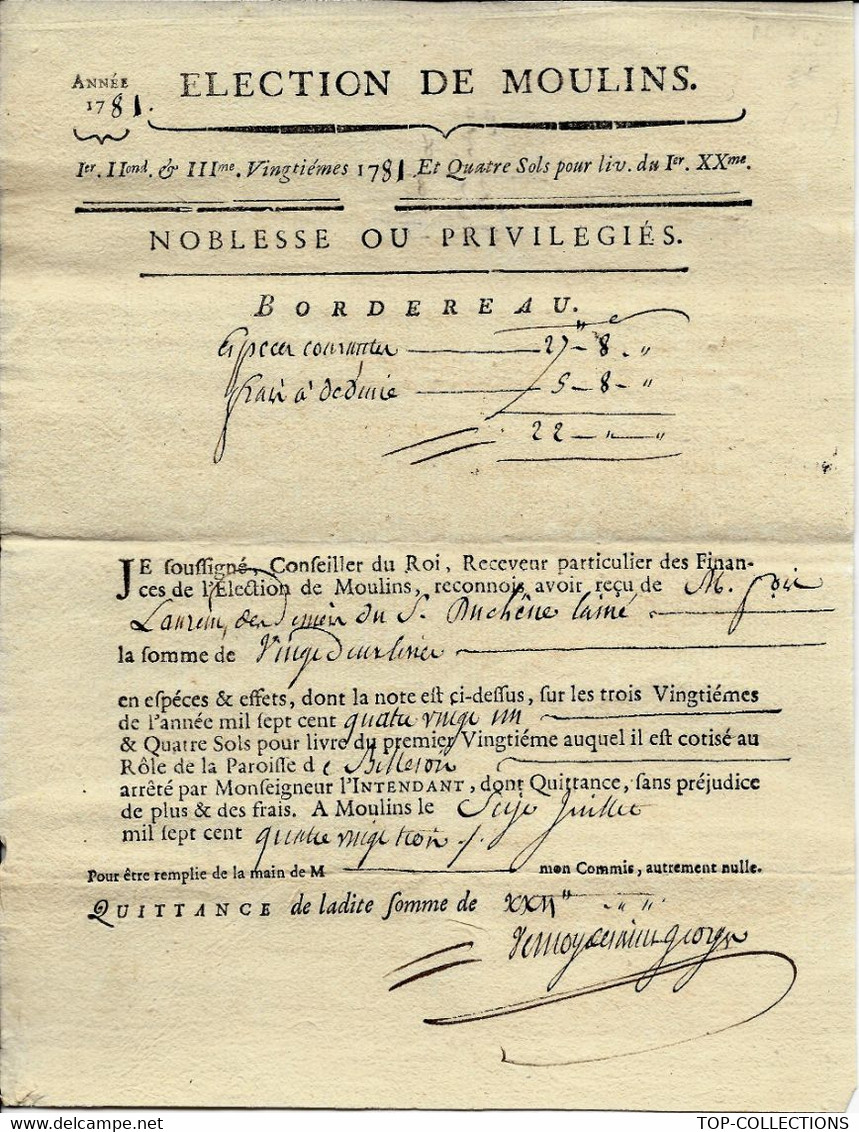 ANNÉE
1781.
ELECTION DE MOULINS.
Ier. IIond. & IIIme. Vingtiémes 1781 Et Quatre Sols pour liv. du Ier. XXme.
NOBLESSE OU PRIVILEGIÉS.
BORDEREAU.
Especes courantes 27 – 8 – "
frais à deduire 5 – 8 – "
22 – " – "
JE soussigné, Conseiller du Roi, Receveur particulier des Finan-
ces de l'Election de Moulins, reconnois avoir reçu de M.
Laurent, du S. Duchêne l'ainé
la somme de Vingt Deux livres
en espéces & effets, dont la note est ci-dessus, sur les trois Vingtiémes
de l'année mil sept cent quatre vingt un
& Quatre Sols pour livre du premier Vingtiéme auquel il est cotisé au
Rôle de la Paroisse de Billeron
arrêté par Monseigneur l'INTENDANT, dont Quittance, sans préjudice
de plus & des frais. A Moulins le Seize Juillet
mil sept cent quatre vingt trois
Pour être remplie de la main de M mon Commis, autrement nulle.
QUITTANCE de ladite somme de XXII" " "
TOP-COLLECTIONS